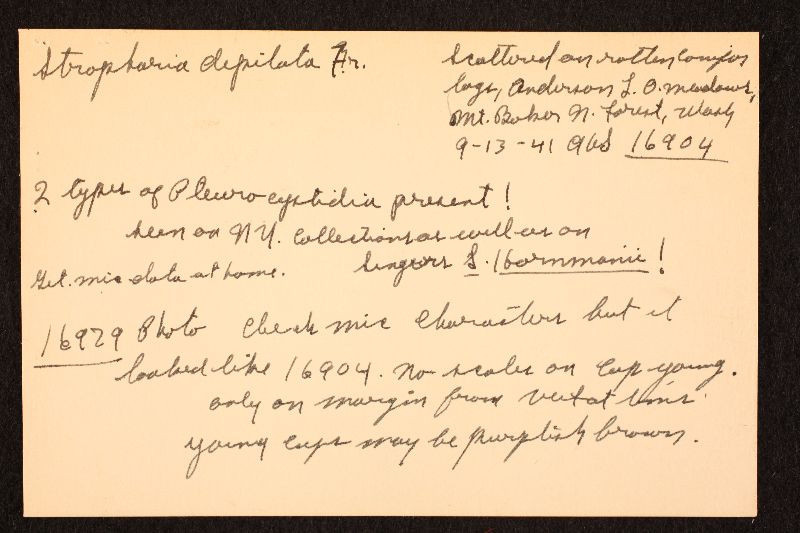 Stropharia depilata Fr.
Scattered on rotten conifer
logs, Anderson L. O. meadows,
Mt. Baker N. Forest, Wash
9-13-41 AHS 16904
2 types of Pleurocystidia present!
seen on N.Y. collections as well as on
Singers S. Hornmanii!
Get mic data at home.
16929 Photo Check mic characters but it
looked like 16904. no scales on cap young.
only on margin from veil at times.
young caps may be purplish brown.